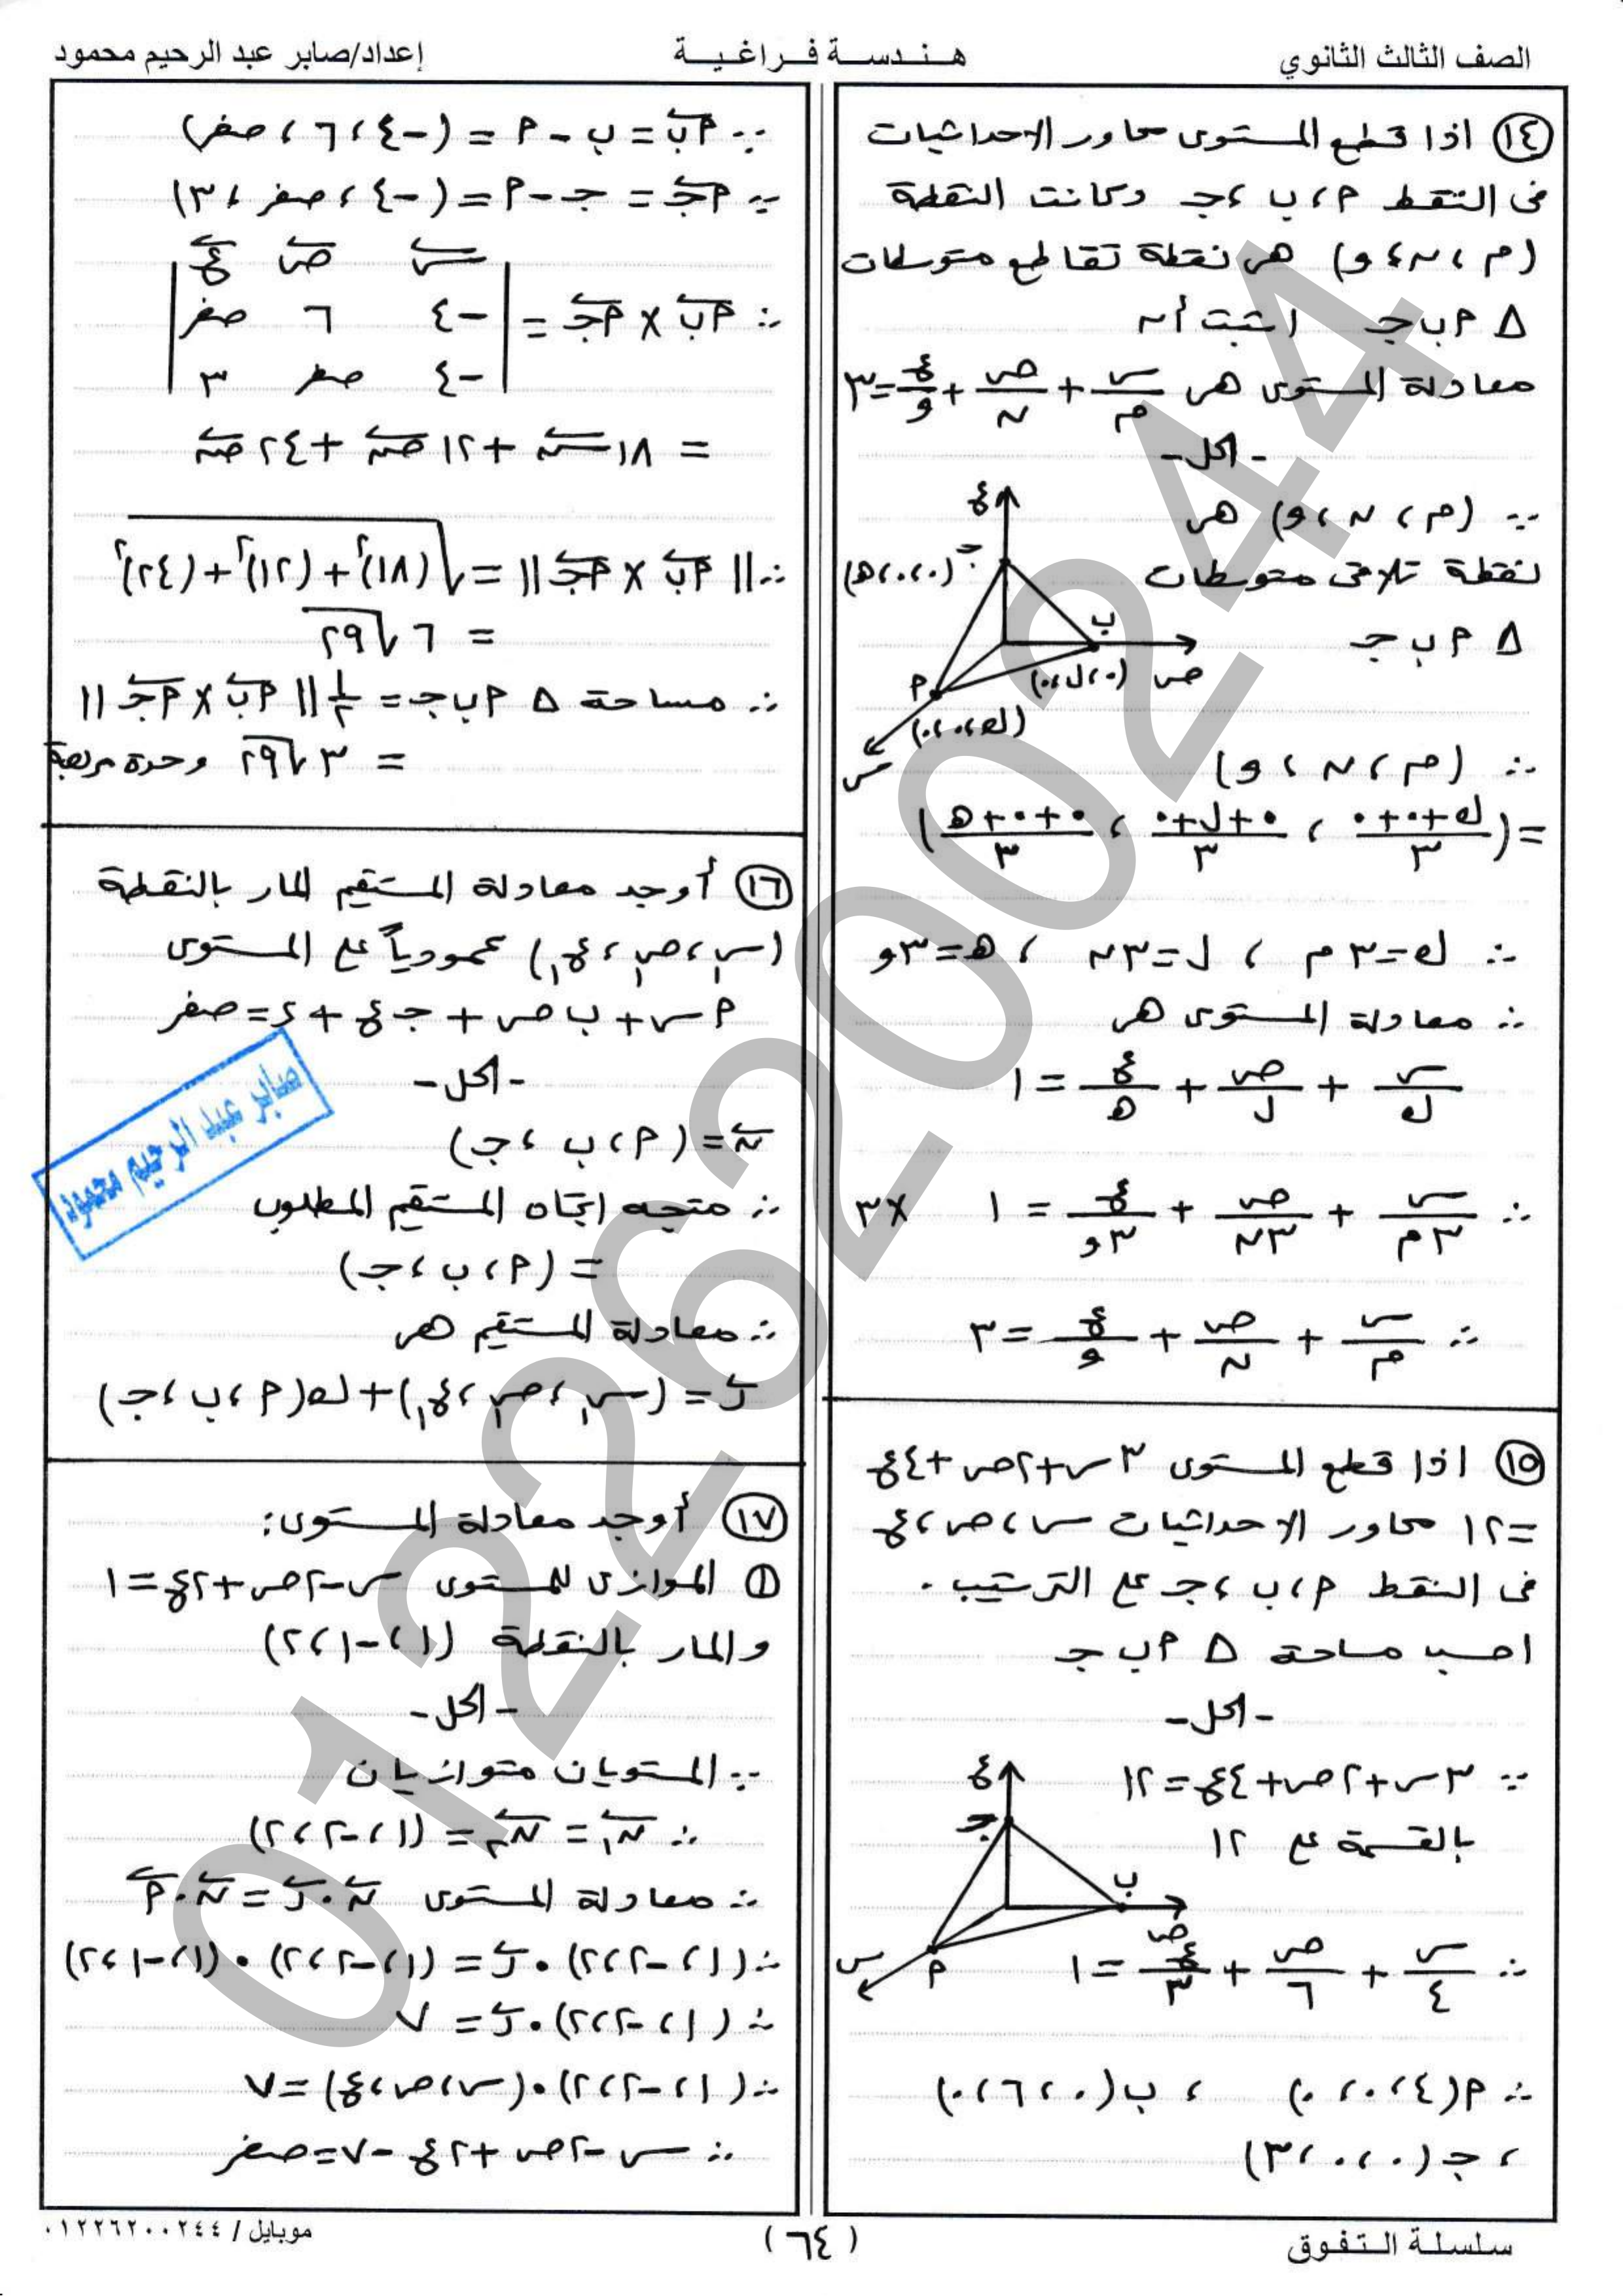 الصف الثالث الثانوي
هندسة فراغية
إعداد/صابر عبد الرحيم محمود
١٤ اذا قطع المستوى محاور الاحداثيات
فى النقط م، ب، جـ وكانت النقطة
(م، ن، و) هى نقطة تقاطع متوسطات
Δ م ب جـ اثبت أن
معادلة المستوى هى س/م + ص/ن + ع/و = ٣
- الحل -
∵ (م، ن، و) هى
نقطة تلاقى متوسطات
Δ م ب جـ
ع
جـ (٠،٠،هـ)
ب
(٠،ل،٠) ص
م
(ك،٠،٠)
س
∴ (م، ن، و)
= ((ك+٠+٠)/٣ ، (٠+ل+٠)/٣ ، (٠+٠+هـ)/٣)
∴ ك=٣م ، ل=٣ن ، هـ=٣و
∴ معادلة المستوى هى
س/ك + ص/ل + ع/هـ = ١
∴ س/٣م + ص/٣ن + ع/٣و = ١ ×٣
∴ س/م + ص/ن + ع/و = ٣
١٥ اذا قطع المستوى ٣س+٢ص+٤ع
=١٢ محاور الاحداثيات س، ص، ع
فى النقط م، ب، جـ على الترتيب.
احسب مساحة Δ م ب جـ
- الحل -
∵ ٣س+٢ص+٤ع=١٢
بالقسمة على ١٢
ع
جـ
ب
ص
م
س
∴ س/٤ + ص/٦ + ع/٣ = ١
∴ م(٤،٠،٠) ، ب(٠،٦،٠)
، جـ(٠،٠،٣)
∵ م ب = ب - م = (-٤،٦،صفر)
∵ م جـ = جـ - م = (-٤،صفر،٣)
س ص ع
∴ م ب × م جـ = | -٤ ٦ صفر |
| -٤ صفر ٣ |
= ١٨س + ١٢ص + ٢٤ص
∴ || م ب × م جـ || = √(١٨)²+(١٢)²+(٢٤)²
= ٦√٢٩
∴ مساحة Δ م ب جـ = ١/٢ || م ب × م جـ ||
= ٣√٢٩ وحدة مربعة
١٦ أوجد معادلة المستقيم المار بالنقطة
(س١، ص١، ع١) عمودياً على المستوى
م س + ب ص + جـ ع + د = صفر
- الحل -
ن = (م، ب، جـ)
صابر عبد الرحيم محمود
∴ متجه اتجاه المستقيم المطلوب
= (م، ب، جـ)
∴ معادلة المستقيم هى
ر = (س١، ص١، ع١) + ك(م، ب، جـ)
١٧ أوجد معادلة المستوى:
١ الموازى للمستوى س-٢ص+٢ع=١
والمار بالنقطة (١،-١،٢)
- الحل -
∵ المستويان متوازيان
∴ ن١ = ن٢ = (١،-٢،٢)
∴ معادلة المستوى ن٠ر = ن٠م
∴ (١،-٢،٢)٠ر = (١،-٢،٢)٠(١،-١،٢)
∴ (١،-٢،٢)٠ر = ٧
∴ (١،-٢،٢)٠(س،ص،ع) = ٧
∴ س-٢ص+٢ع-٧=صفر
01226200244
سلسلة التفوق
(٦٤)
موبايل / ٠١٢٢٦٢٠٠٢٤٤